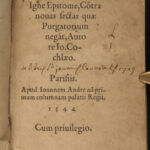 Ighe Epitome, Cōtra
nouas sectas quæ
Purgatorium
negāt, Auto
re Io. Co-
chlæo.
Parisiis.
Apud Ioannem Andre ad pri-
mam columnam palatii Regii,
1544
Cum priuilegio.